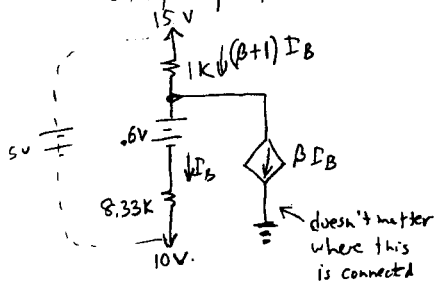 15 V
1K ↓(β+1) I_B
5v
.6v
↓I_B
β I_B
8.33K
10V.
doesn't matter
where this
is connected